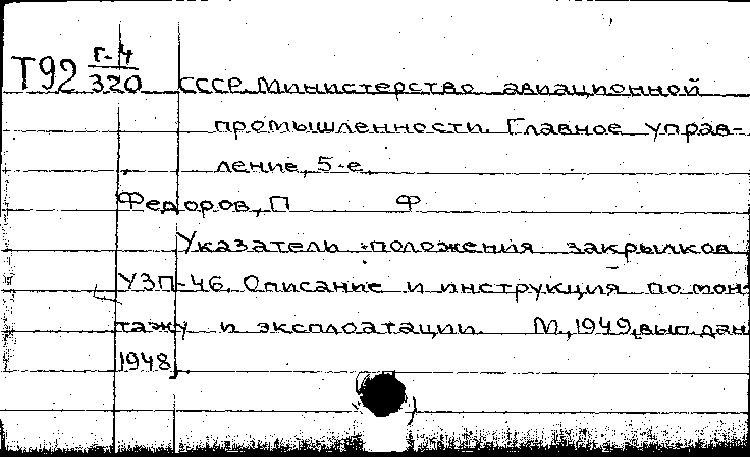 Т92 Г-4/320 СССР. Министерство авиационной
промышленности. Главное управ-
ление, 5-е.
Федоров, П Ф
Указатель положения закрылков
УЗП-46. Описание и инструкция по мон-
тажу и эксплоатации. М., 1949, вып. дан
1948].